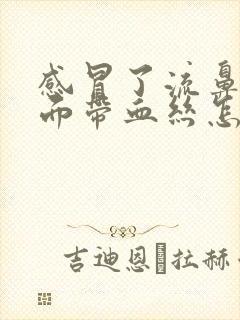 感冒了流鼻
而带血丝怎
吉迪恩 拉赫